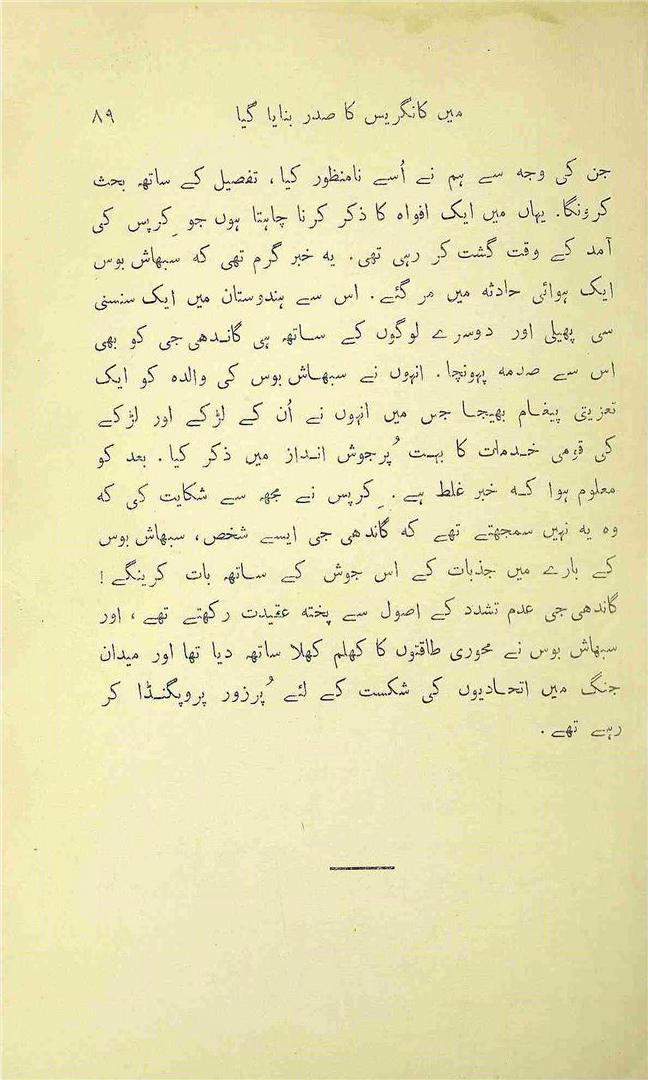 میں کانگریس کا صدر بنایا گیا ۸۹
جن کی وجہ سے ہم نے اُسے نامنظور کیا، تفصیل کے ساتھ بحث
کرؤنگا۔ یہاں میں ایک افواہ کا ذکر کرنا چاہتا ہوں جو کِرپس کی
آمد کے وقت گشت کر رہی تھی۔ یہ خبر گرم تھی کہ سبھاش بوس
ایک ہوائی حادثہ میں مر گئے۔ اس سے ہندوستان میں ایک سنسنی
سی پھیلی اور دوسرے لوگوں کے ساتھ ہی گاندھی جی کو بھی
اس سے صدمہ پہونچا۔ انہوں نے سبھاش بوس کی والدہ کو ایک
تعزیتی پیغام بھیجا جس میں انہوں نے اُن کے لڑکے اور لڑکے
کی قومی خدمات کا بہت پُرجوش انداز میں ذکر کیا۔ بعد کو
معلوم ہوا کہ خبر غلط ہے۔ کِرپس نے مجھ سے شکایت کی کہ
وہ یہ نہیں سمجھتے تھے کہ گاندھی جی ایسے شخص، سبھاش بوس
کے بارے میں جذبات کے اس جوش کے ساتھ بات کرینگے!
گاندھی جی عدم تشدد کے اصول سے پختہ عقیدت رکھتے تھے، اور
سبھاش بوس نے محوری طاقتوں کا کھلم کھلا ساتھ دیا تھا اور میدان
جنگ میں اتحادیوں کی شکست کے لئے پُرزور پروپگنڈا کر
رہے تھے۔